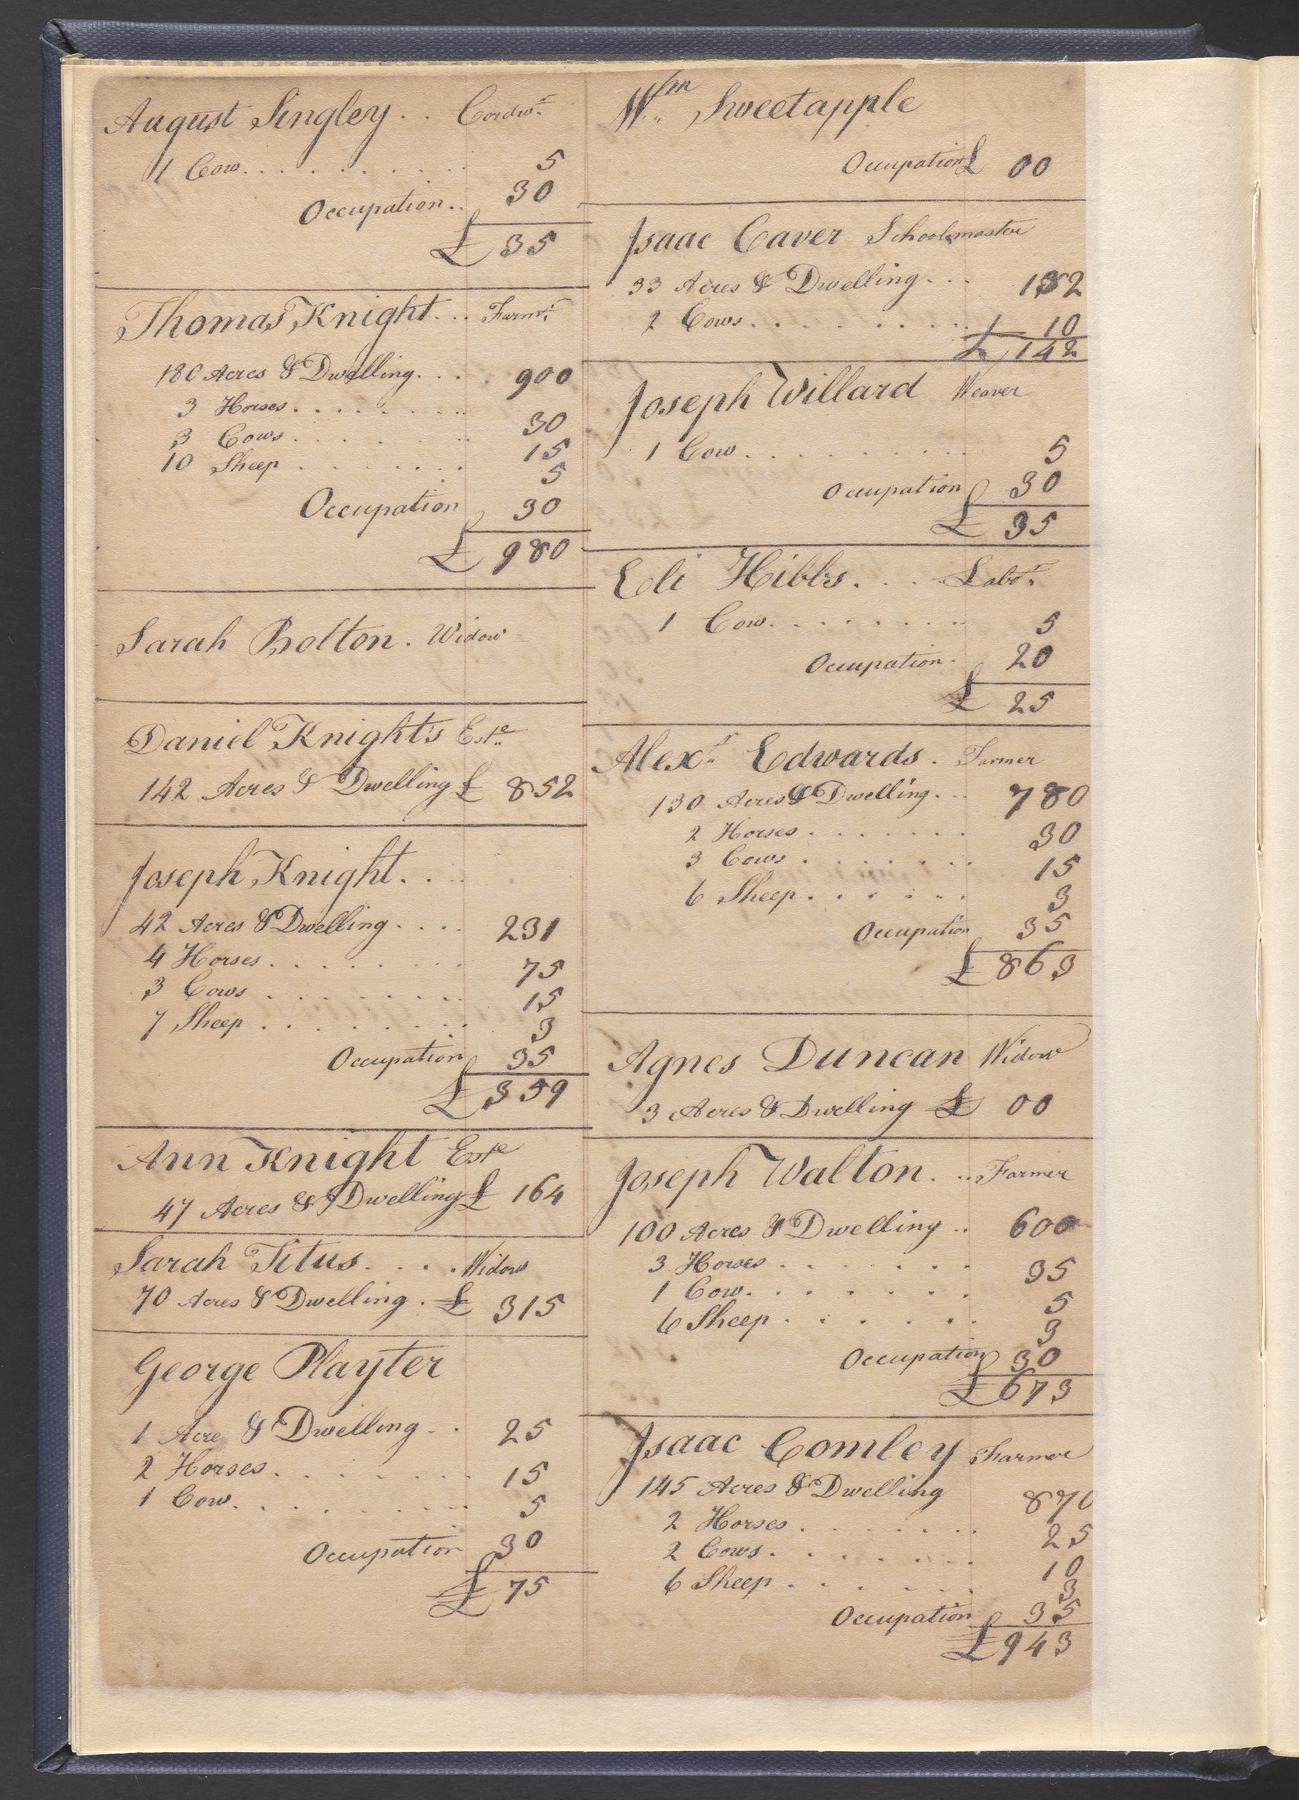 August Singley . . Cordwr.
1 Cow . . . . . . . . . 5
Occupation . . 30
£ 35
Thomas Knight . . . Farmr.
180 Acres & Dwelling . . . 900
3 Horses . . . . . . . . 30
3 Cows . . . . . . . 15
10 Sheep . . . . . . . 5
Occupation 30
£ 980
Sarah Bolton . Widow
Daniel Knight's Este.
142 Acres & Dwelling £ 852
Joseph Knight . . .
42 Acres & Dwelling . . . . 231
4 Horses . . . . . . . . 75
3 Cows . . . . . . . . 15
7 Sheep . . . . . . . . 3
Occupation 35
£ 359
Ann Knight Este
47 Acres & Dwelling £ 164
Sarah Titus . . . . Widow
70 Acres & Dwelling . £ 315
George Playter
1 Acre & Dwelling . . 25
2 Horses . . . . . . . 15
1 Cow . . . . . . . 5
Occupation 30
£ 75
Wm. Sweetapple
Occupation £ 00
Isaac Caver Schoolmaster
33 Acres & Dwelling . . . 132
2 Cows . . . . . . . . . . 10
£ 142
Joseph Willard Weaver
1 Cow . . . . . . . . . . 5
Occupation 30
£ 35
Eli Hibbs . . . . Labor.
1 Cow . . . . . . . . 5
Occupation . 20
£ 25
Alexr. Edwards . Farmer
130 Acres & Dwelling . . . 780
2 Horses . . . . . . . 30
3 Cows . . . . . . . 15
6 Sheep . . . . . . 3
Occupation 35
£ 863
Agnes Duncan Widow
3 Acres & Dwelling £ 00
Joseph Walton . . . Farmer
100 Acres & Dwelling . . 600
3 Horses . . . . . . . 35
1 Cow . . . . . . . 5
6 Sheep . . . . . . 3
Occupation 30
£ 673
Isaac Comley Farmer
145 Acres & Dwelling 870
2 Horses . . . . . . . 25
2 Cows . . . . . . . 10
6 Sheep . . . . . . 3
Occupation 35
£ 943